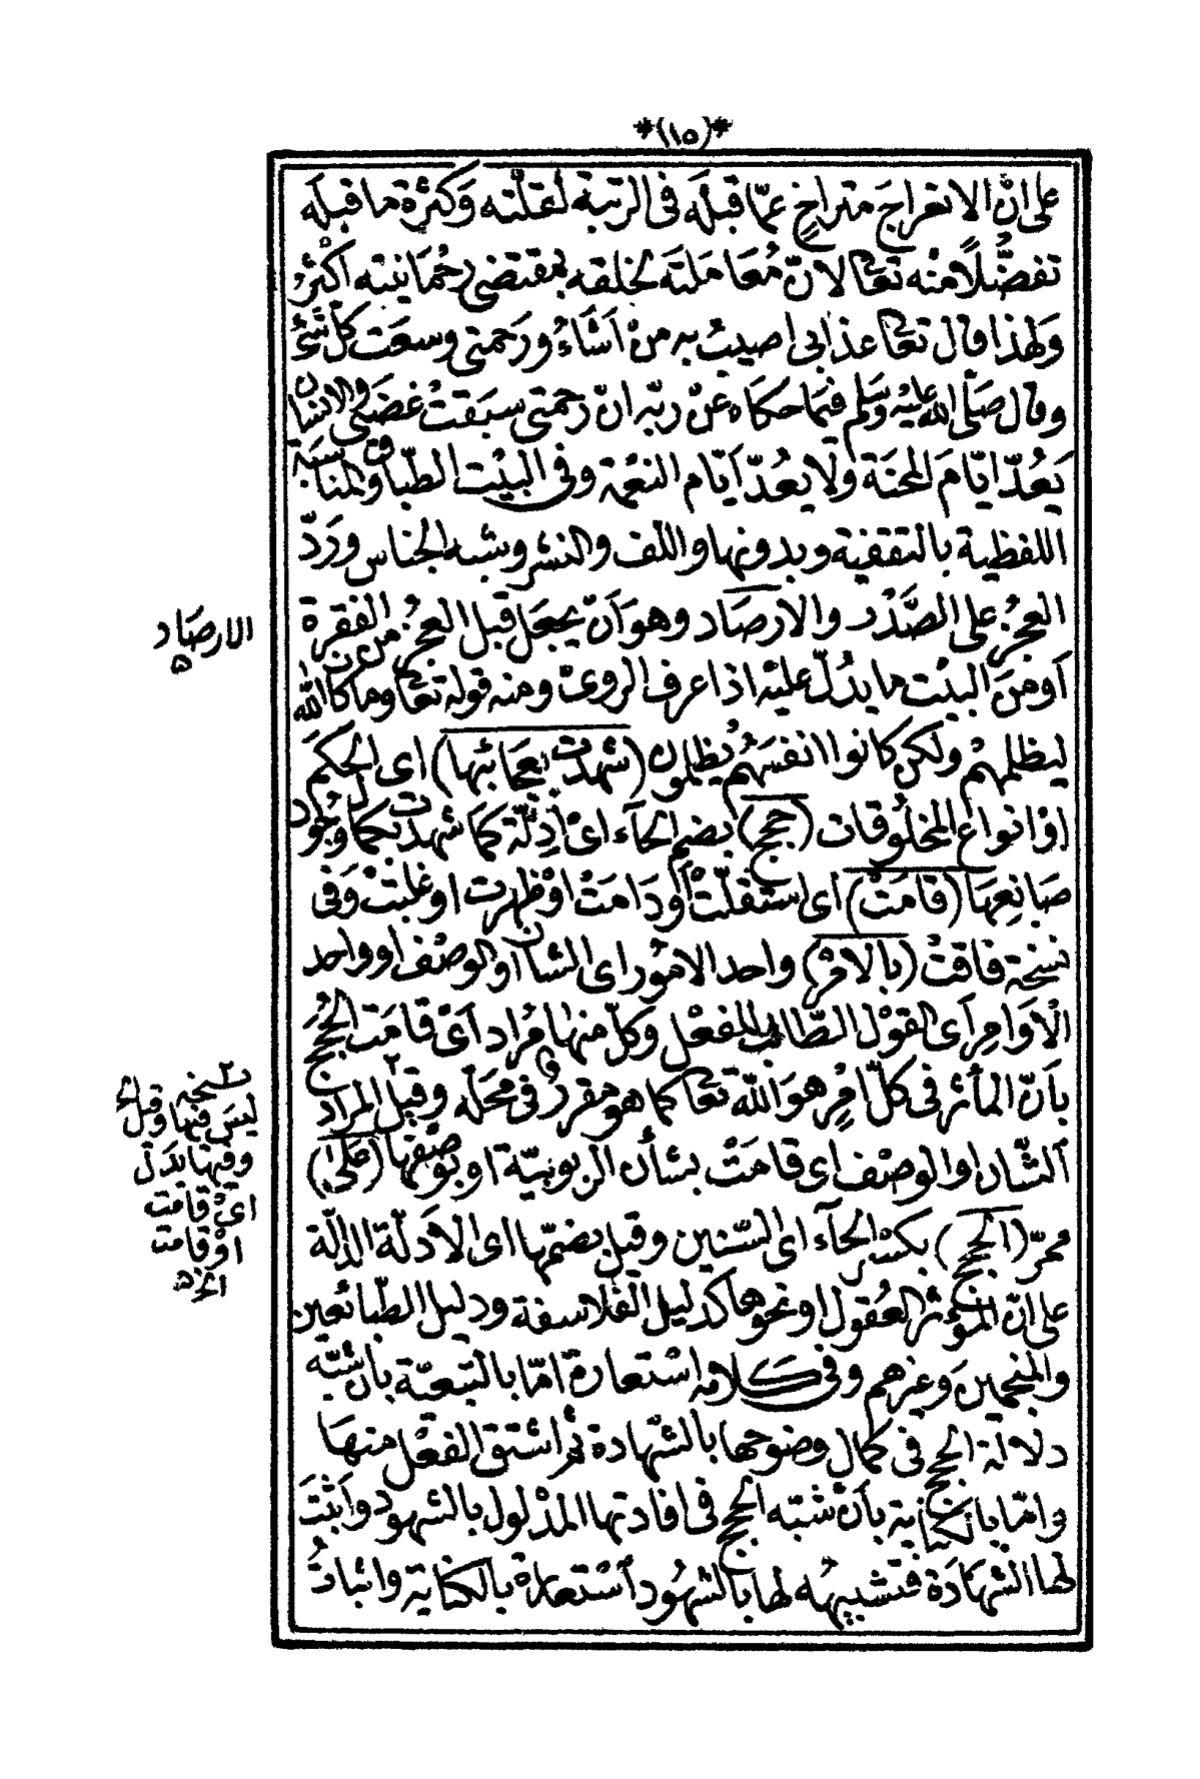 *(١٥)*
على انّ الانفراجَ متراخٍ عمّا قبلَه فى الرتبة لقلّته وَكثرة ما قبله
تفضُّلًا منْه تعالى لانّ مُعَاملتَه لخلقه بمقتضى رحْمَانيته اكثرُ
وَلهذا قال تعالى عذابى اصيب به منْ اَشَاءُ ورَحمتى وسعَت كلّ شئ
وقال صَلّى اللّه عليْه وسَلم فيمَا حكاه عنْ ربّه انّ رحمتى سبَقتْ غضبى والانسان
يَعُدّ ايّامَ المحنَة ولَا يعُدّ اَيّام النعْمة وفى البيْت الطّباق والمناسبة
اللفظية بالتقفية وبدونها واللف والنشر وشبه الجناس وَرَدّ
العجُز على الصَّدْر والارصَاد وهوَ اَنْ يجعَل قبل العجُز من الفقرة
اَو منَ البيْت ما يدُلّ عليْه اذا عرف الروىّ ومنه قوله تعالى وما كان اللّه
ليظلمهمْ ولكن كانوا انفسَهُم يُظلمون (شهدَت بعجَائبها) اى الحكم
اوْ انواع المخلُوقات (حجج) بضم الحآء اىْ اَدِلّة كمَا شهدَت بكمال وجُود
صَانِعِهَا (قامَتْ) اى استقلّتْ اَودَامَتْ اوْظهرت اوغلبَتْ وَفى
نسْخة فاقتْ (بالامْر) واحد الامُور اى الشان اوالوصْف اوواحد
الْاَوَامِر اَى القوْل الطّالب للفعْل وَكلّ منها مُراد اَىْ قامَت الحُجَج
بِاَنّ المأثر فى كلّ امْرٍ هوَ اللّه تعالى كما هو مقررٌ فى محَلّه وقيل المراد
اَلشّان اوالوصْف اى قامَتْ بشأن الربوبيّة اوبوصْفها (عَلَى)
محرّ (الحجج) بكسْر الحآء اى السّنين وقيل بضمّها اى الاَدلّة الدالّة
على انّ المؤثر العُقول اونحوها كدليل الفلاسفة ودليل الطّبائعين
والمنجمين وَغيرهم وفى كلامه اسْتعارة امّا بالتبعيّة بان شبّه
دلالة الحجج فى كمال وضوحها بالشّهادة ثم اشتق الفعْل منها
وامّا بالكناية بأنْ شبّه الحجج فى افادتها المدْلول بالشهود وَاَثبتَ
لها الشهَادَة فتشبيهُه لها بالشهُود اسْتعارة بالكناية واثباتُ
الارصَاد
ه
نسخه
ليسَ فيها وقيل الخ
وفيها بَدَل
اىْ قامَت
اوْ قامت
الخ ه